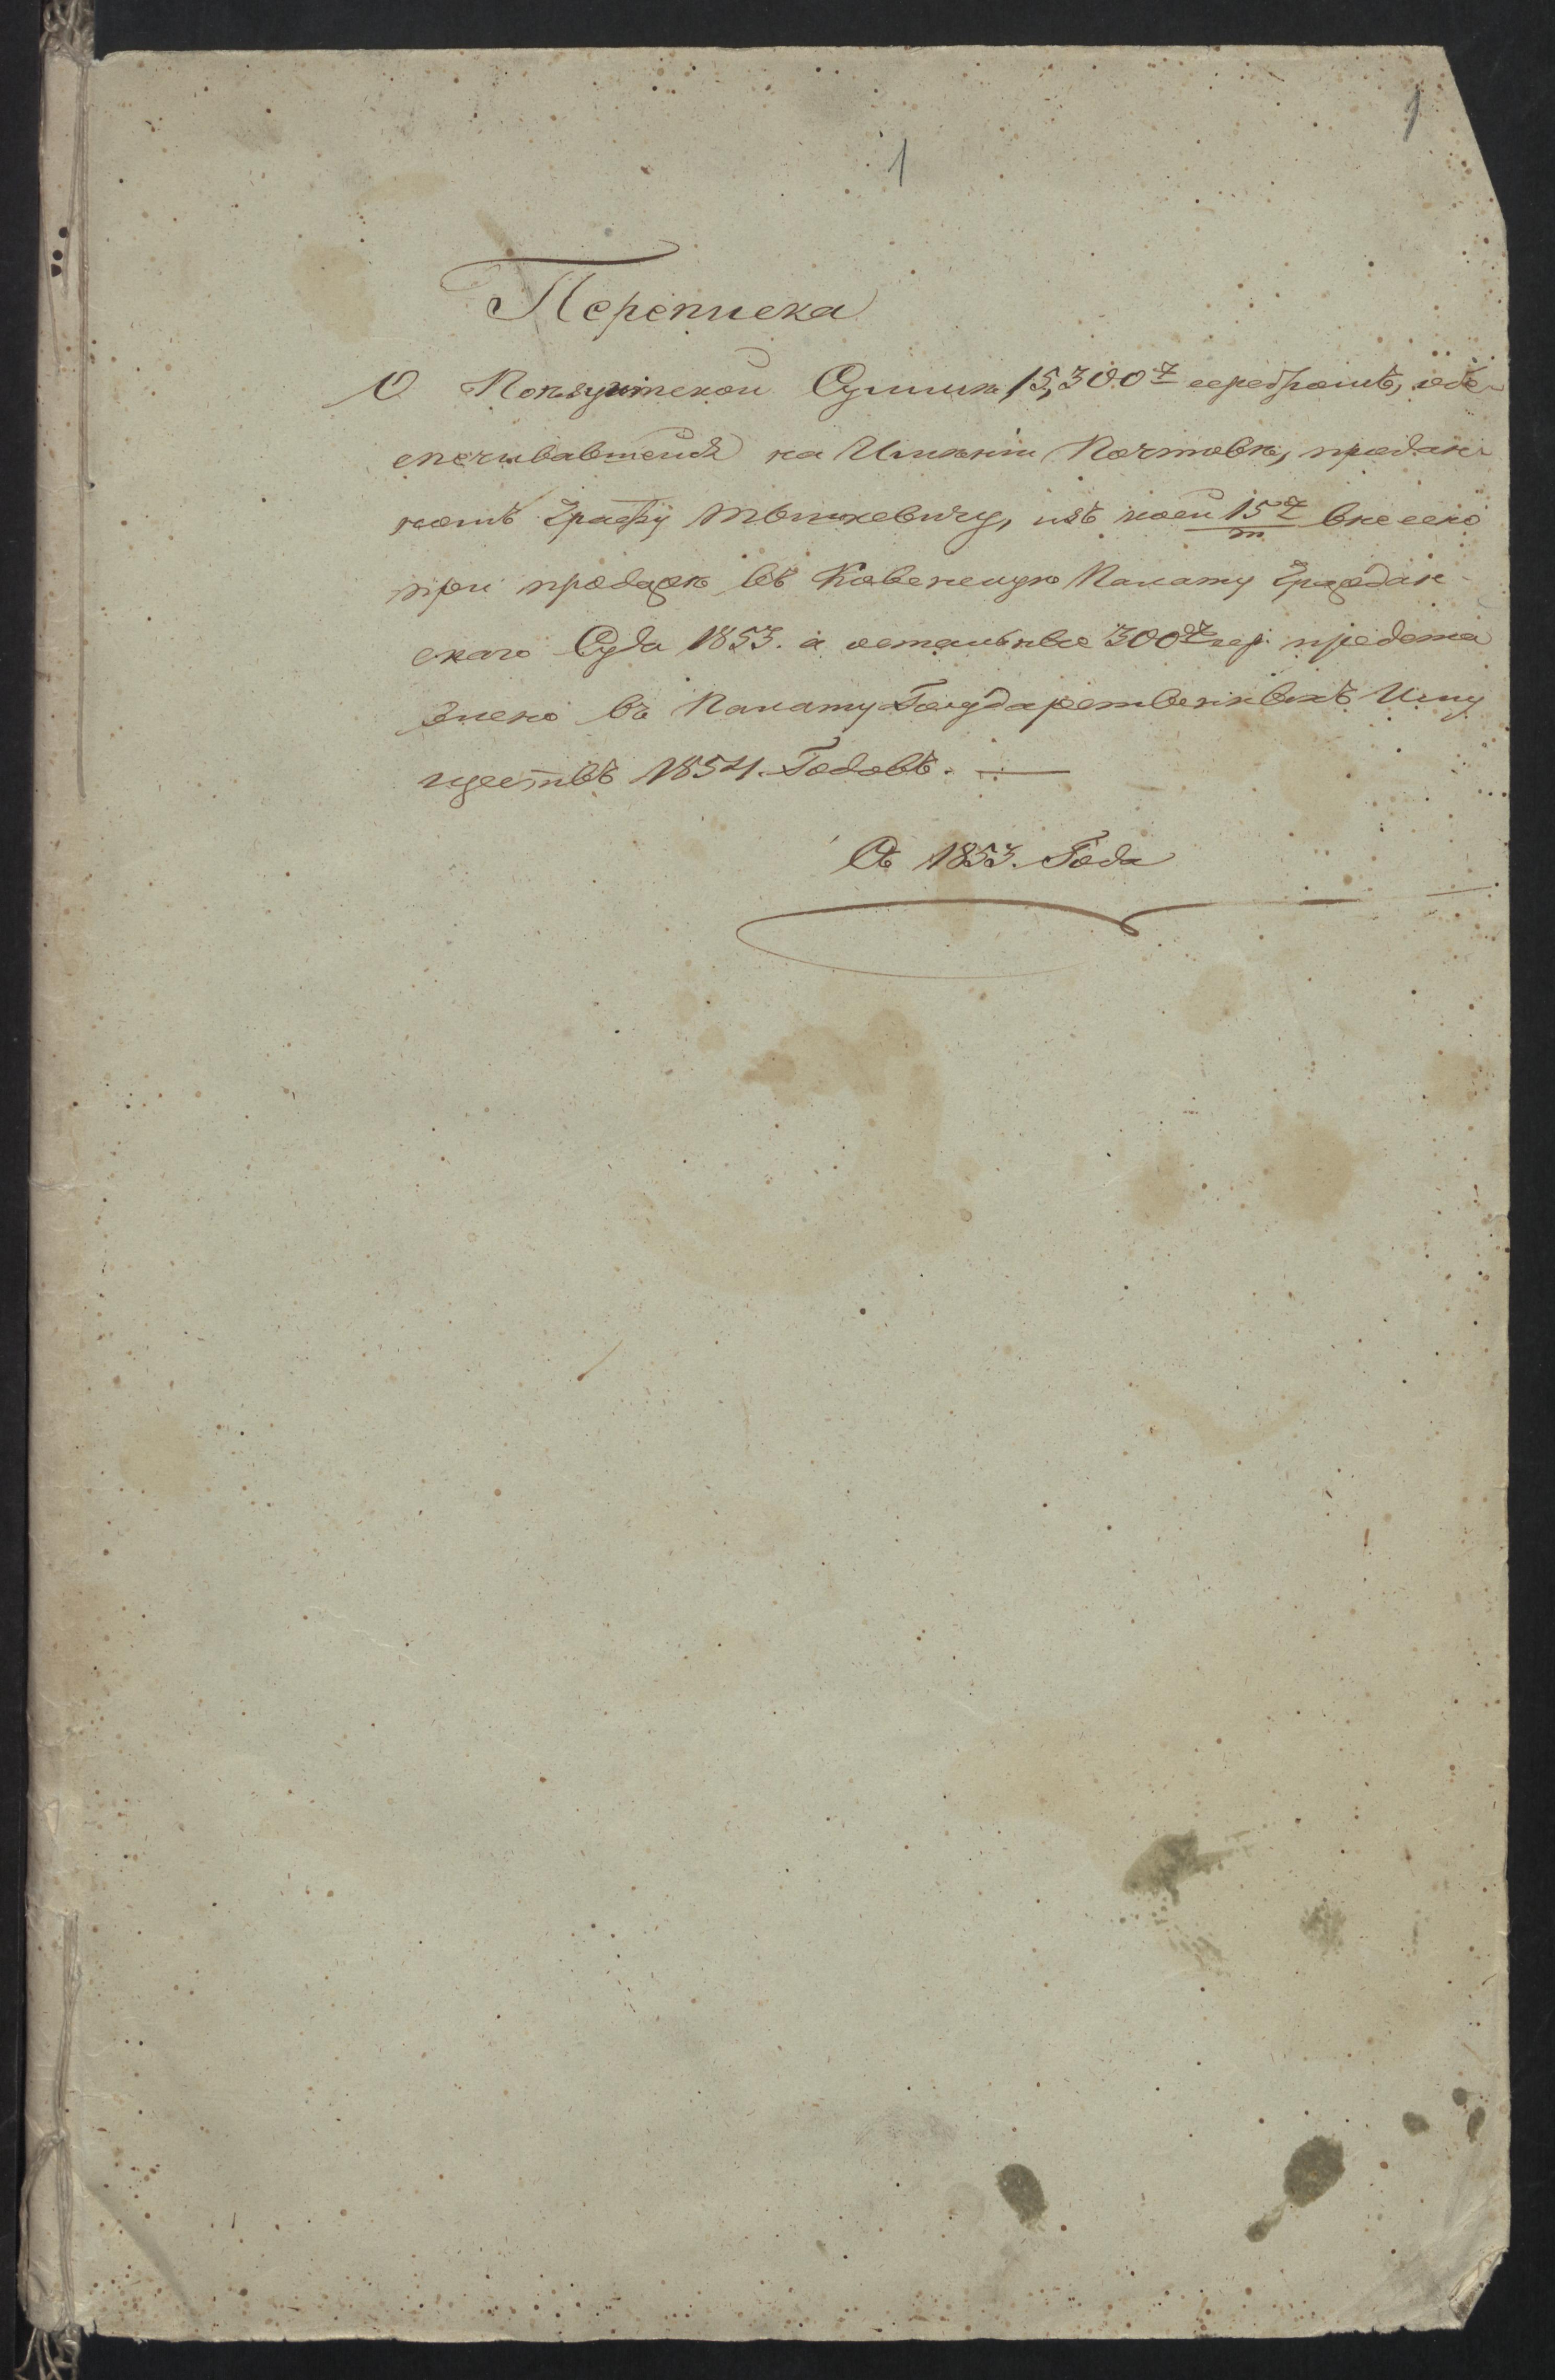 1
1
Переписка
О Поіезуитской Суммѣ 15,300 р серебромъ, обез-
печивавшейся на Имѣніи Почтовѣ, продан-
номъ Графу Тышкевичу, изъ коей 15 р/т внесено
при продажѣ въ Ковенскую Палату Граждан-
скаго Суда 1853. а остальные 300 р сер. предста
влено въ Палату Государственныхъ Иму
ществъ 1854. Годовъ. —
Съ 1853. Года